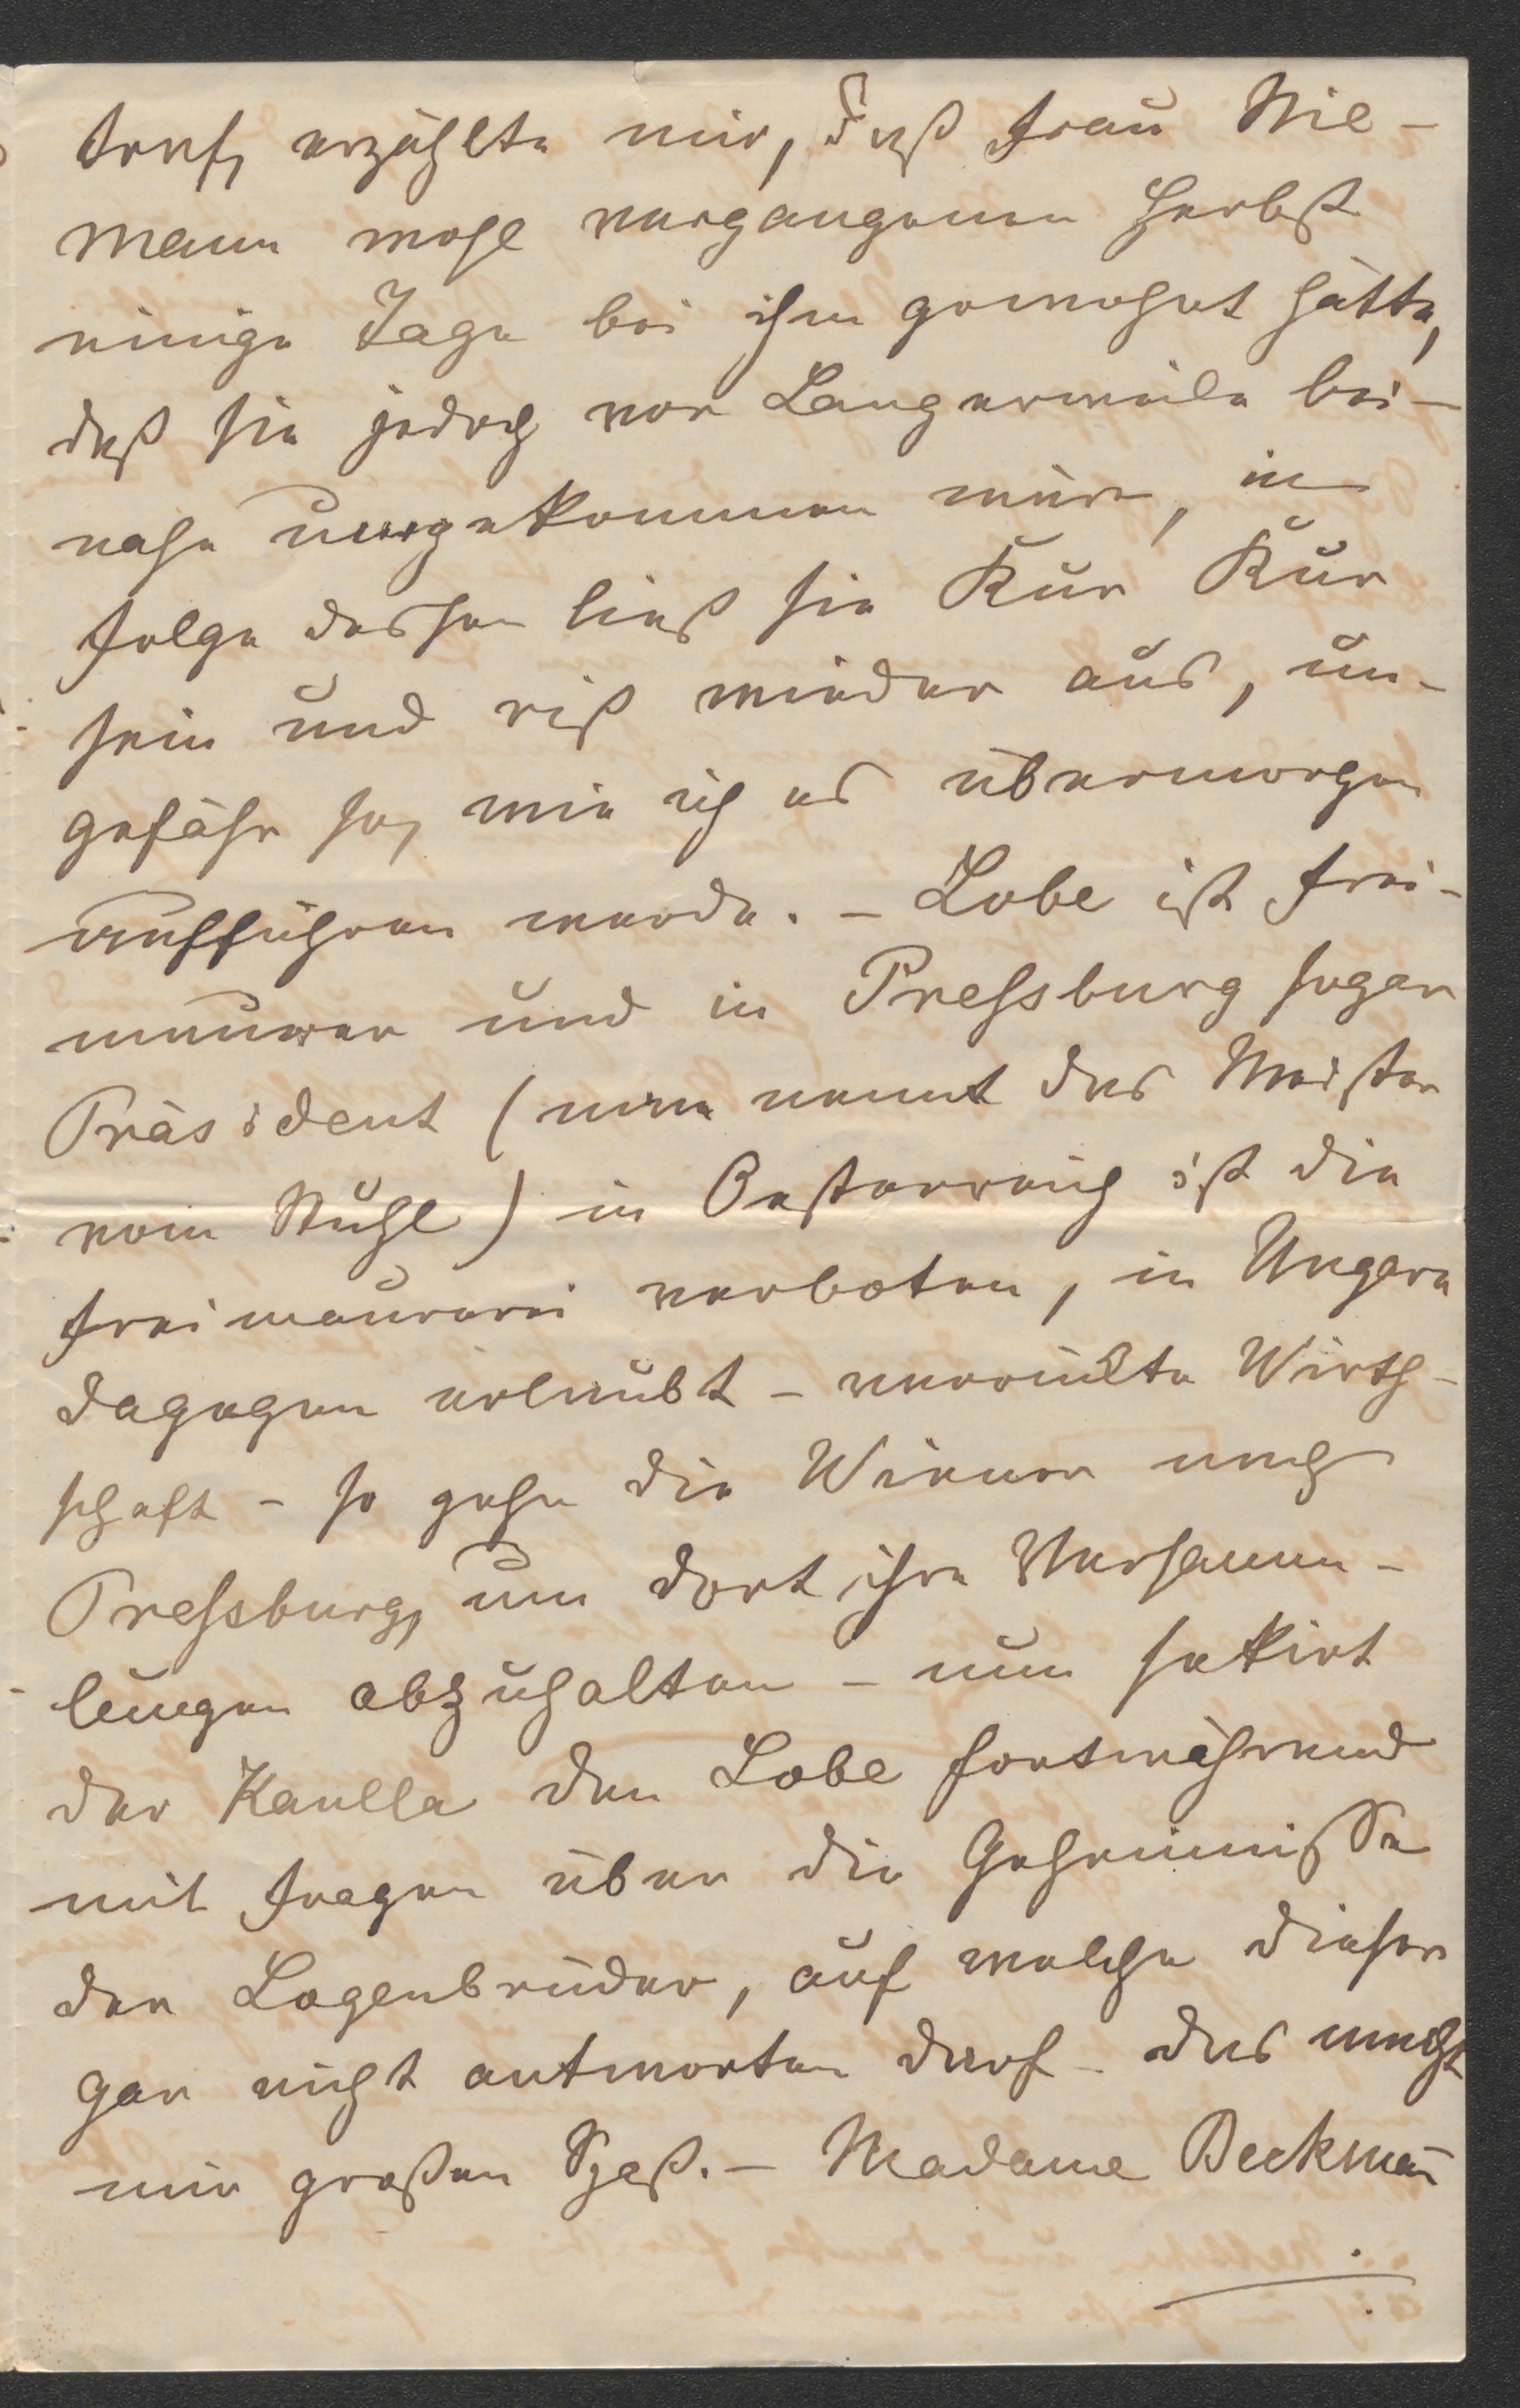 traf, erzählte mir, daß Frau Nie-
mann wohl vergangenen Herbst
einige Tage bei ihm gewohnt hätte,
daß sie jedoch vor Langerweile bei-
nahe umgekommen wäre, in
Folge dessen ließ sie Kur Kur
sein und riß wieder aus, un-
gefähr so, wie ich es übermorgen
aufführen werde. - Lobe ist Frei-
maurer und in Pressburg sogar
Präsident (man nennt das Meister
vom Stuhl) in Oesterreich ist die
Freimaurerei verboten, in Ungarn
dagegen erlaubt - verrückte Wirth-
schaft - so gehn die Wiener nach
Pressburg, um dort ihre Versamm-
lungen abzuhalten - nun sekirt
der Kaulla den Lobe fortwährend
mit Fragen über die Geheimnisse
der Logenbrüder, auf welche dieser
gar nicht antworten darf - das macht
mir großen Spaß. - Madame Beckman̄